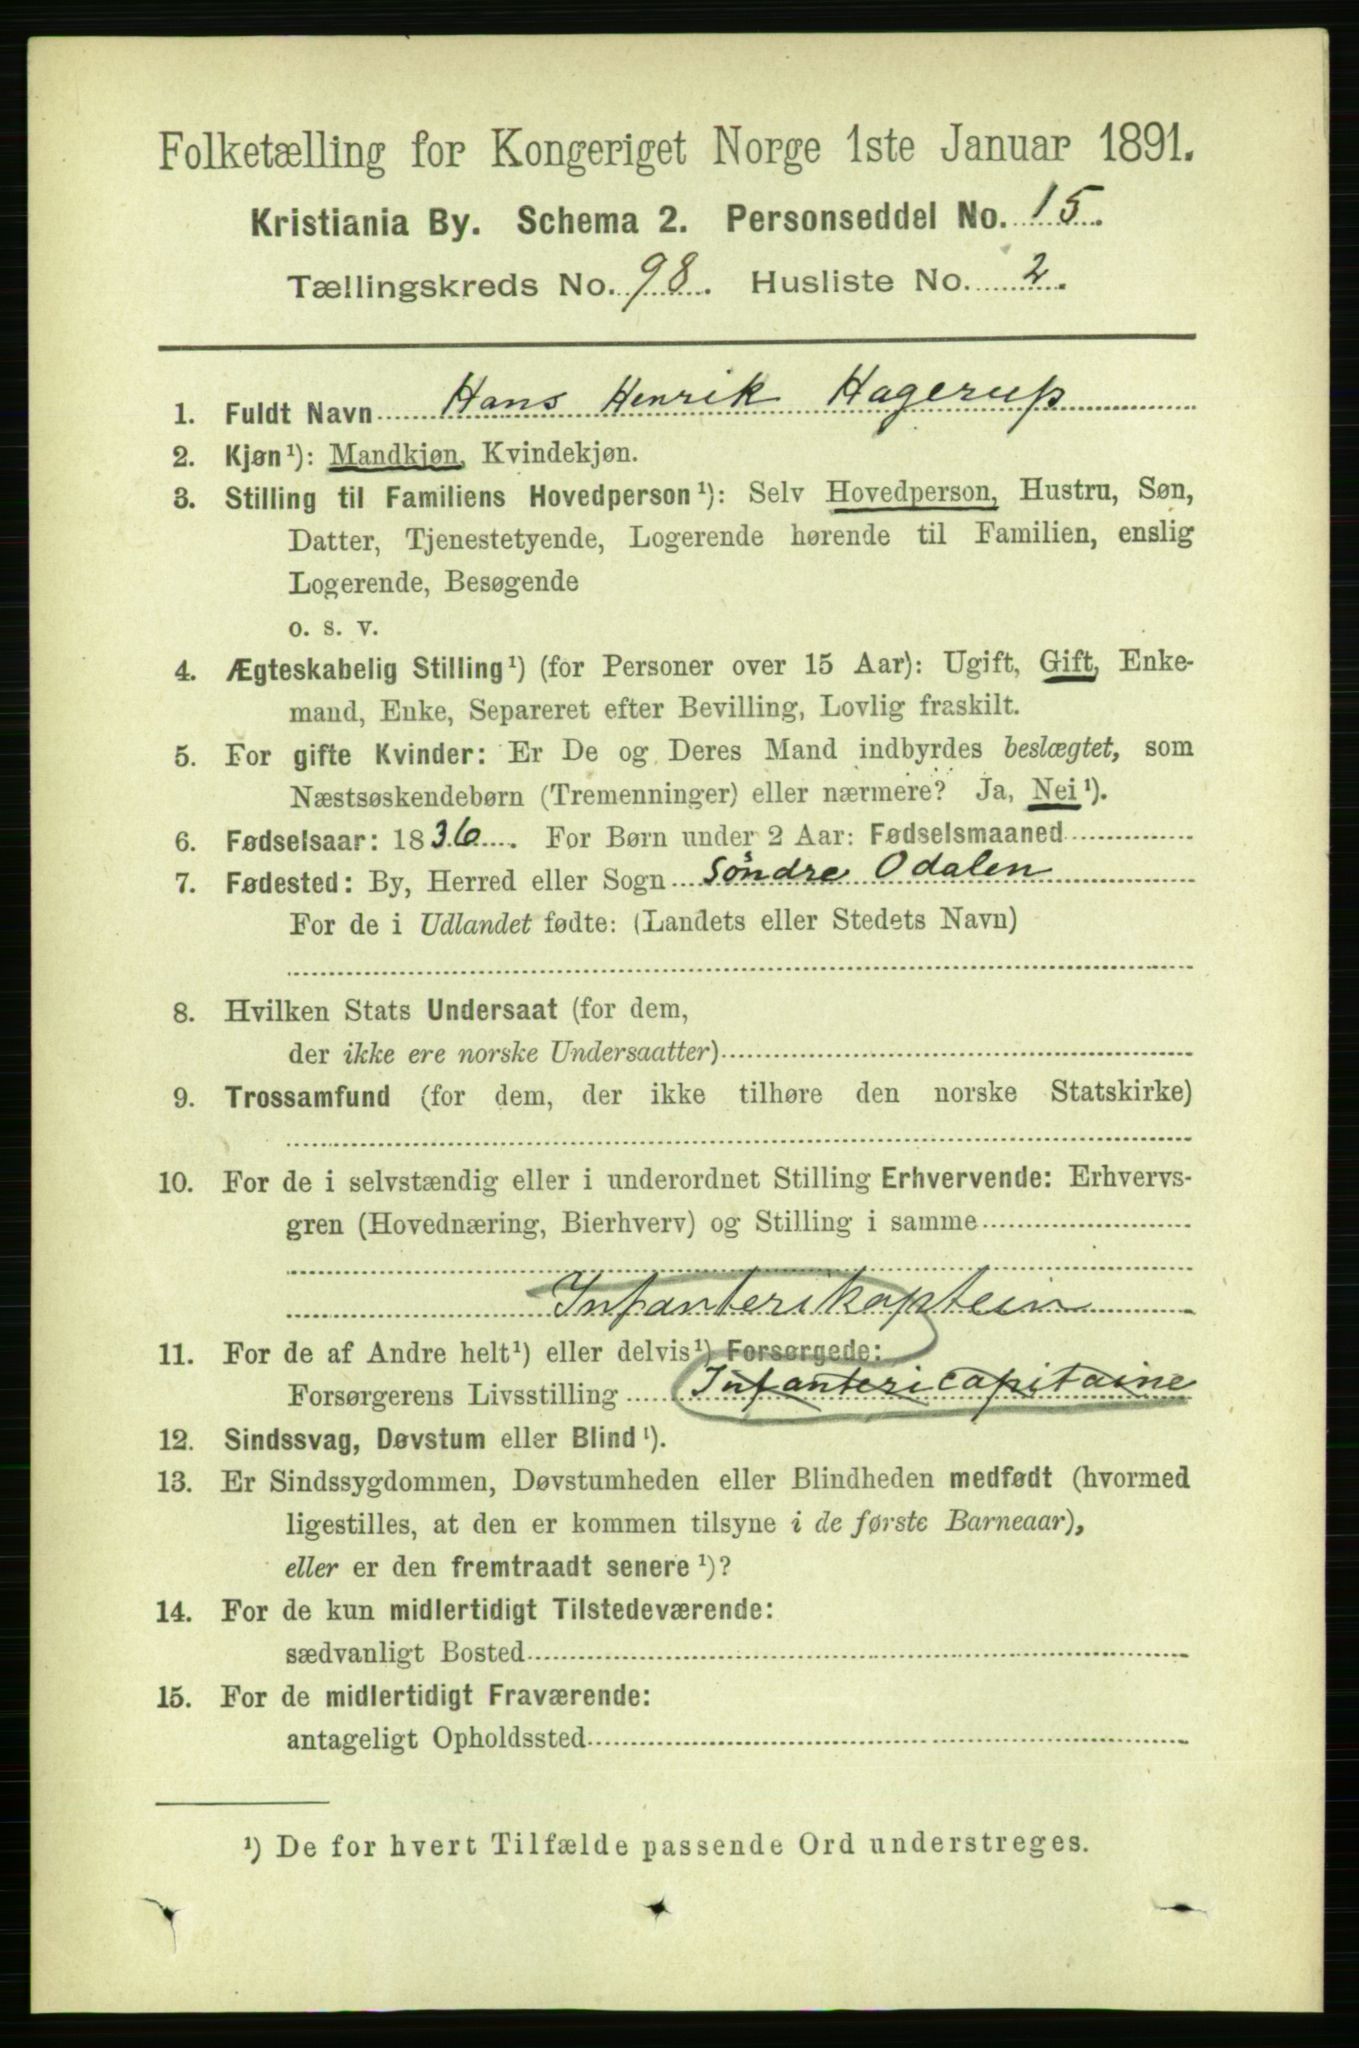 Folketælling for Kongeriget Norge 1ste Januar 1891.
Kristiania By. Schema 2. Personseddel No. 15.
Tællingskreds No. 98. Husliste No. 2.
1. Fuldt Navn Hans Henrik Hagerup
2. Kjøn¹): Mandkjøn, Kvindekjøn.
3. Stilling til Familiens Hovedperson¹): Selv Hovedperson, Hustru, Søn,
Datter, Tjenestetyende, Logerende hørende til Familien, enslig
Logerende, Besøgende
o. s. v.
4. Ægteskabelig Stilling¹) (for Personer over 15 Aar): Ugift, Gift, Enke-
mand, Enke, Separeret efter Bevilling, Lovlig fraskilt.
5. For gifte Kvinder: Er De og Deres Mand indbyrdes beslægtet, som
Næstsøskendebørn (Tremenninger) eller nærmere? Ja, Nei¹).
6. Fødselsaar: 1836. For Børn under 2 Aar: Fødselsmaaned
7. Fødested: By, Herred eller Sogn Söndre Odalen
For de i Udlandet fødte: (Landets eller Stedets Navn)
8. Hvilken Stats Undersaat (for dem,
der ikke ere norske Undersaatter)
9. Trossamfund (for dem, der ikke tilhøre den norske Statskirke)
10. For de i selvstændig eller i underordnet Stilling Erhvervende: Erhvervs-
gren (Hovednæring, Bierhverv) og Stilling i samme
Infanterikaptein
11. For de af Andre helt¹) eller delvis¹) Forsørgede:
Forsørgerens Livsstilling Infantericapitaine
12. Sindssvag, Døvstum eller Blind¹).
13. Er Sindssygdommen, Døvstumheden eller Blindheden medfødt (hvormed
ligestilles, at den er kommen tilsyne i de første Barneaar),
eller er den fremtraadt senere¹)?
14. For de kun midlertidigt Tilstedeværende:
sædvanligt Bosted
15. For de midlertidigt Fraværende:
antageligt Opholdssted
¹) De for hvert Tilfælde passende Ord understreges.